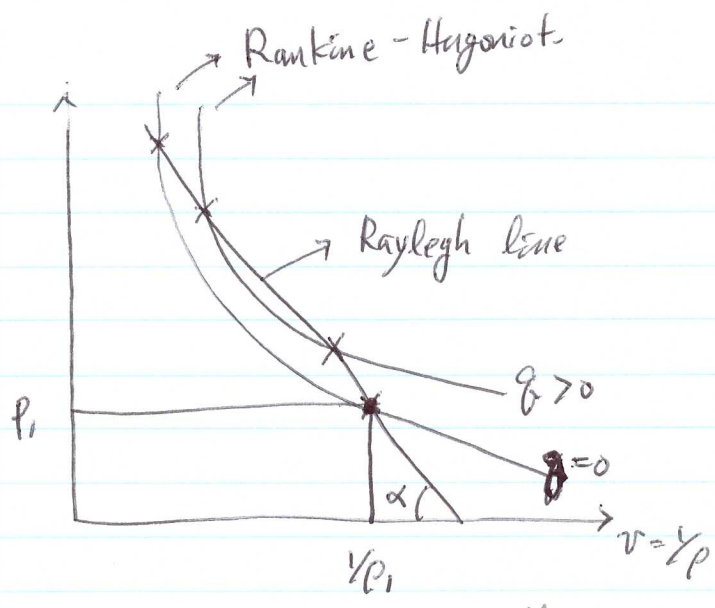 Rankine - Hugoniot.
Raylegh line
q > 0
P₁
q = 0
α
v = 1/ρ
1/ρ₁